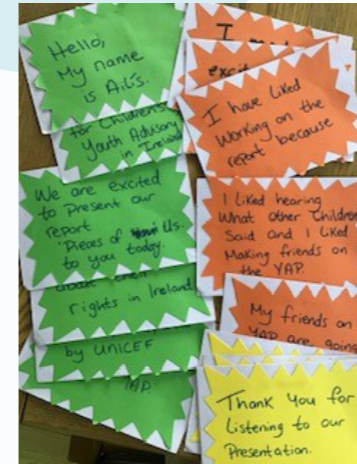 Hello,
My name
is Ailís.
for Children's
Youth Advisory
in Ireland
We are excited
to Present our
report
'Pieces of Us.
to you today.
rights in Ireland
by UNICEF
YAP.
I
excit
I have Liked
Working on the
report because
I Liked hearing
What other Children
Said and I Liked
Making friends on
the YAP.
My friends on
YAP are going
Thank you for
Listening to our
Presentation.